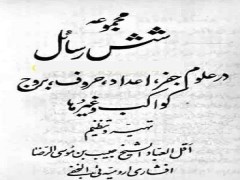 مجموعه
شش رسائل
در علوم جفر، اعداد، حروف، بروج
کواکب و غیرها
تهیه و تنظیم
اقل العباد الشیخ حبیب بن موسی الرضا
افشاری ارومیه ای النجفی